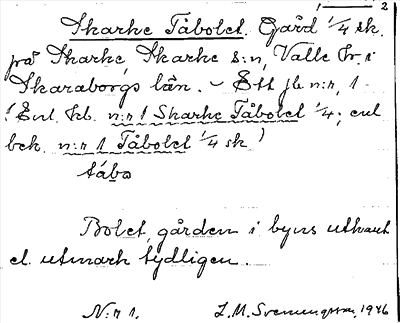 1 — 2
Skarke Tåbolet. Gård 1/4 sk.
på Skarke, Skarke s:n, Valle hr i
Skaraborgs län. – Ett jb n:r, 1.
(Enl. kb. n:r 1 Skarke Tåbolet 1/4; enl
bek. n:r 1 Tåbolet 1/4 sk.)
tábo
Bolet, gården i byns utkant
el. utmark tydligen.
N:r 1. L. M. Svenungsson, 1946